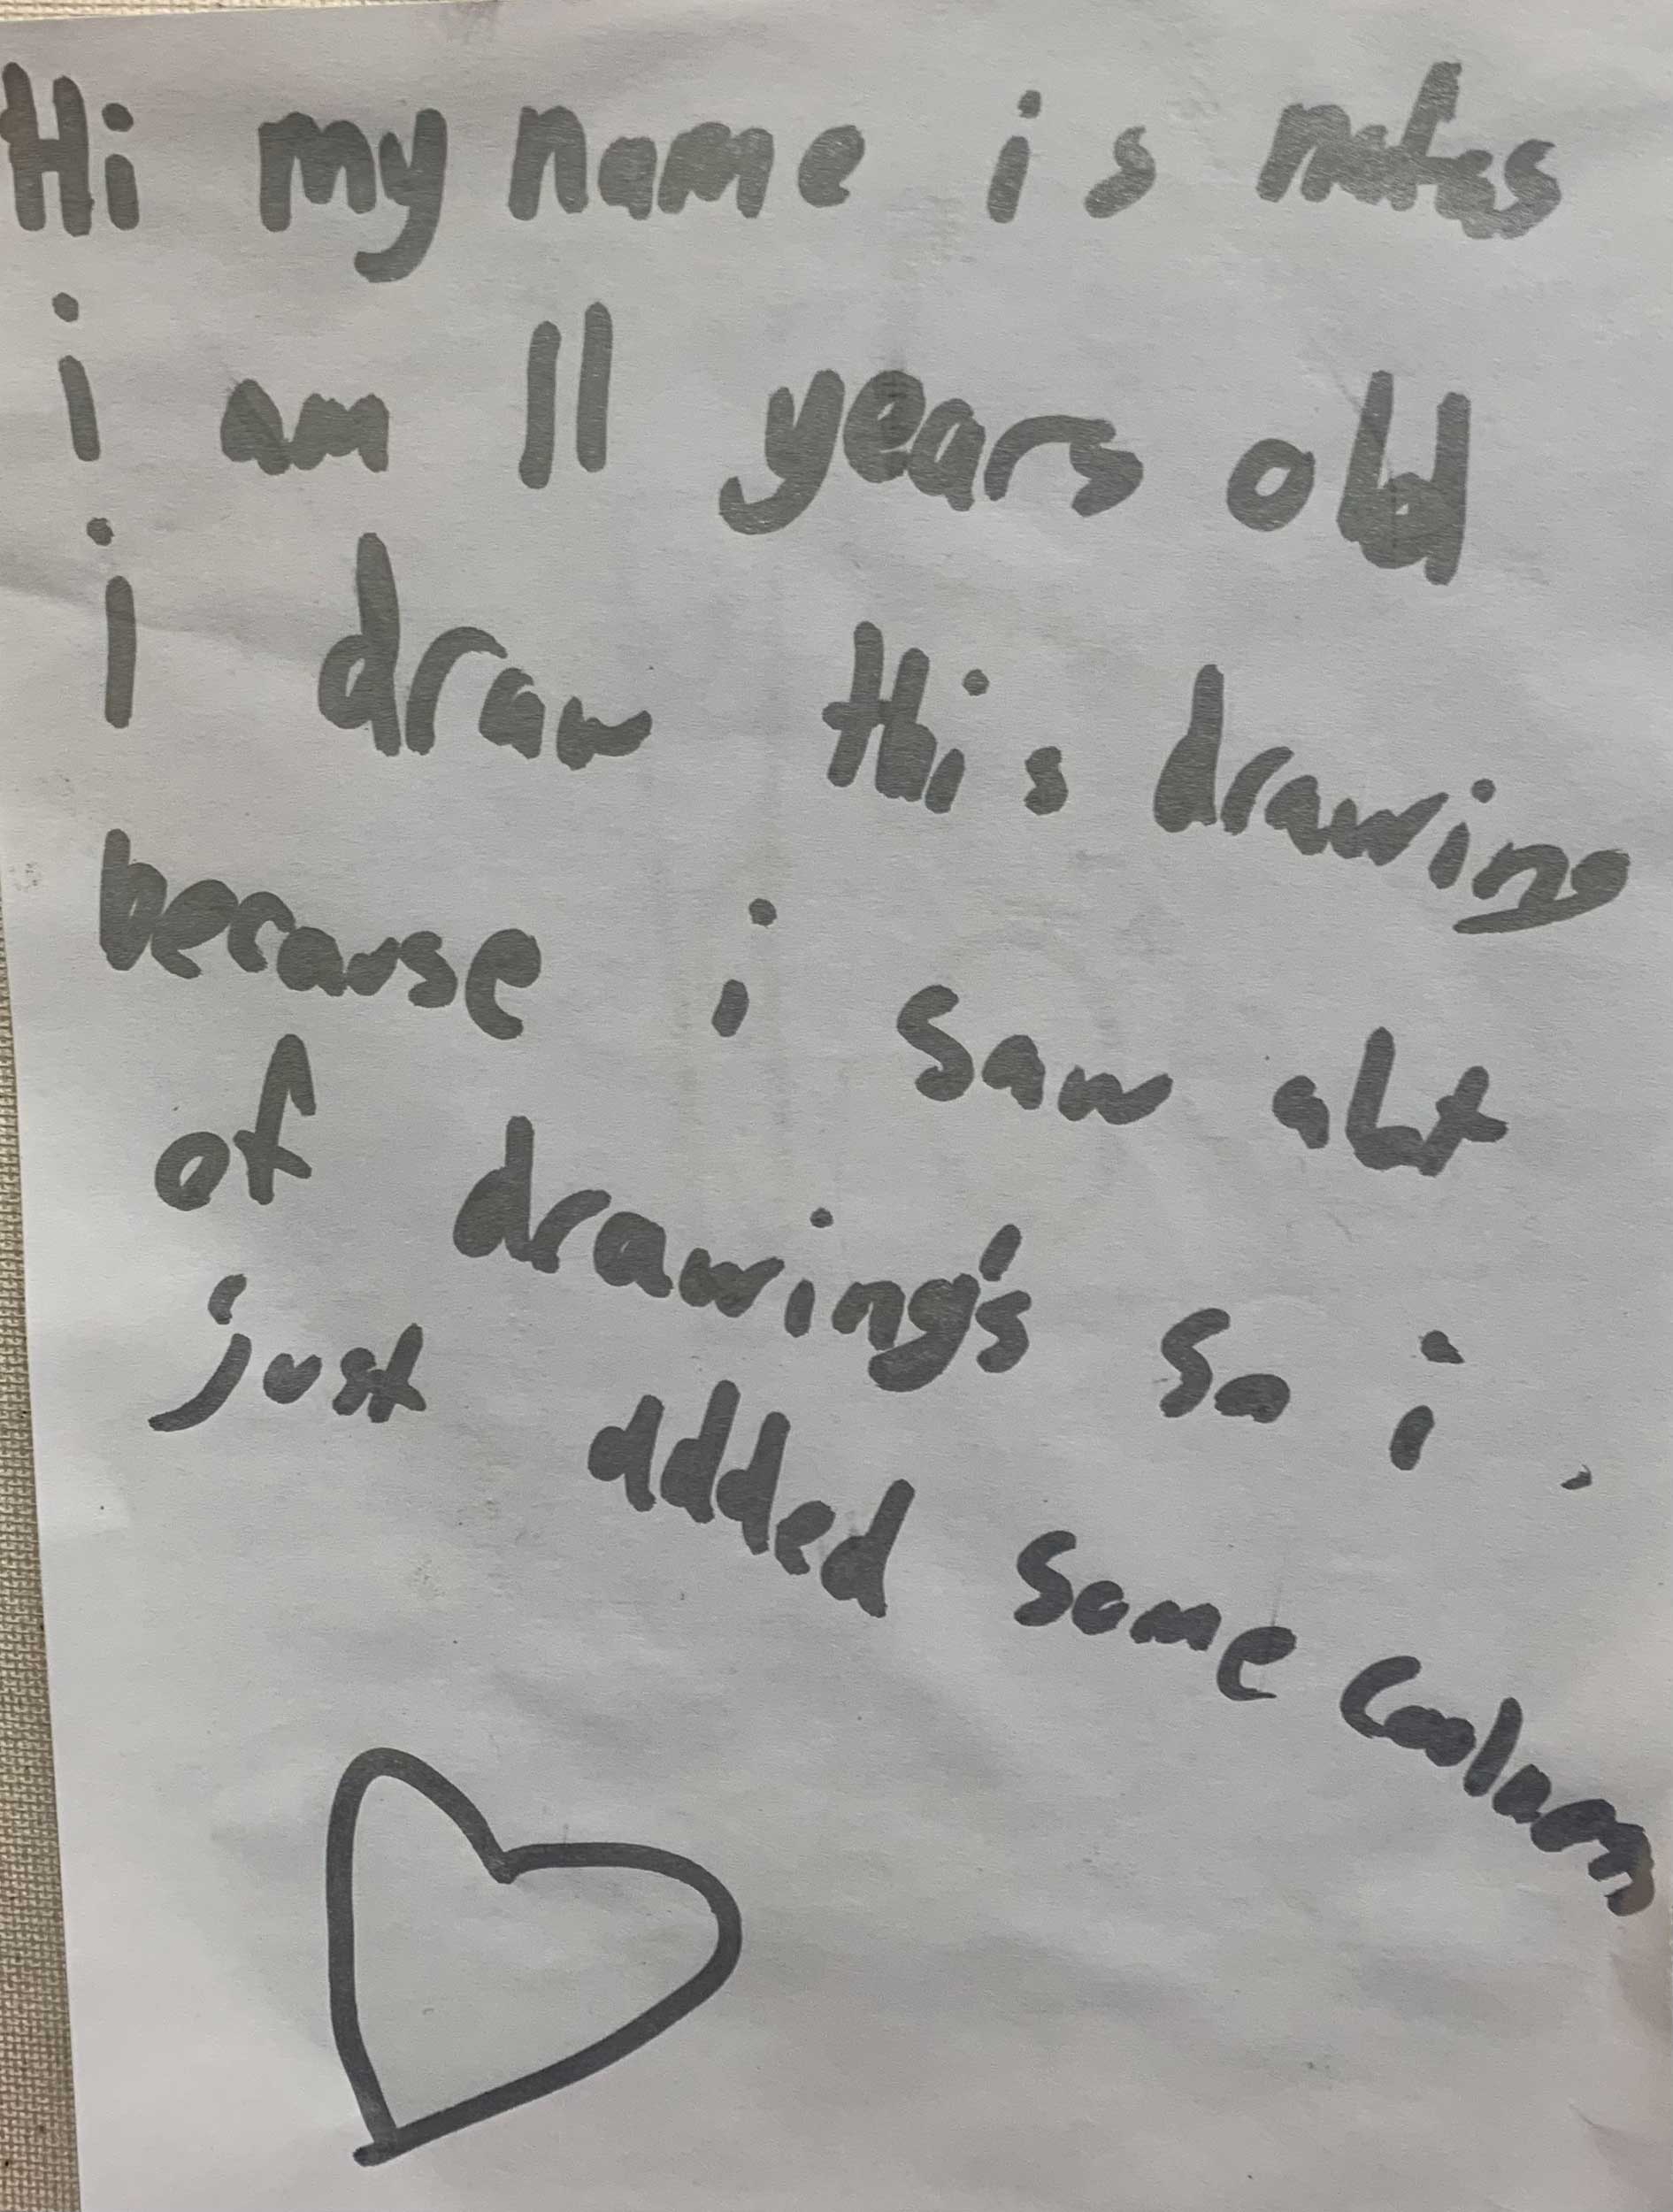 Hi my name is
i am 11 years old
i draw this drawing
because i saw alot
of drawing's so i
just added some